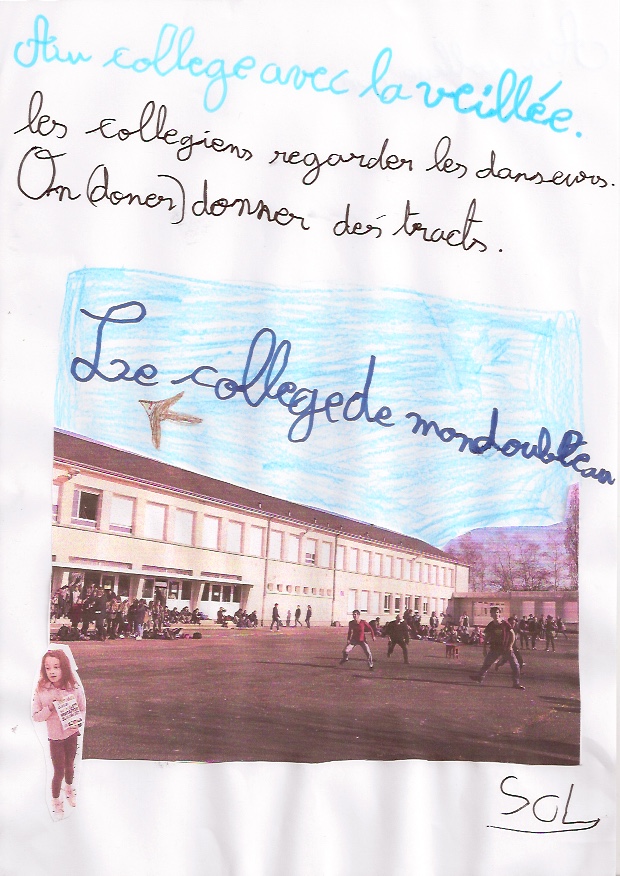 Au college avec la veillée.
les collegiens regarder les danseurs.
On (doner) donner des tracts.
Le college de mondoubleau
SOL